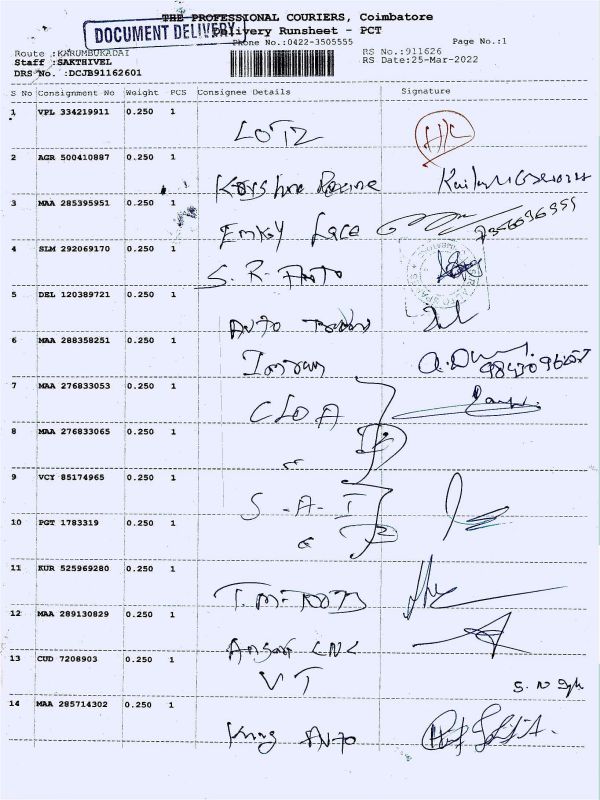 THE PROFESSIONAL COURIERS, Coimbatore
DOCUMENT DELIVERY
Delivery Runsheet - PCT
Phone No.:0422-3505555 Page No.:1
Route :KARUMBUKADAI RS No.:911626
Staff :SAKTHIVEL RS Date:25-Mar-2022
DRS No. :DCJB91162601
S No Consignment No Weight PCS Consignee Details Signature
1 VPL 334219911 0.250 1
LOTZ
2 AGR 500410887 0.250 1
3 MAA 285395951 0.250 1
Emkay Lace
4 SLM 292069170 0.250 1
S. R. Auto
5 DEL 120389721 0.250 1
Auto
6 MAA 288358251 0.250 1
Imran
7 MAA 276833053 0.250 1
8 MAA 276833065 0.250 1
9 VCY 85174965 0.250 1
S - A - I
10 PGT 1783319 0.250 1
11 KUR 525969280 0.250 1
12 MAA 289130829 0.250 1
Ansari CNC
13 CUD 7208903 0.250 1
VT
14 MAA 285714302 0.250 1
King Auto